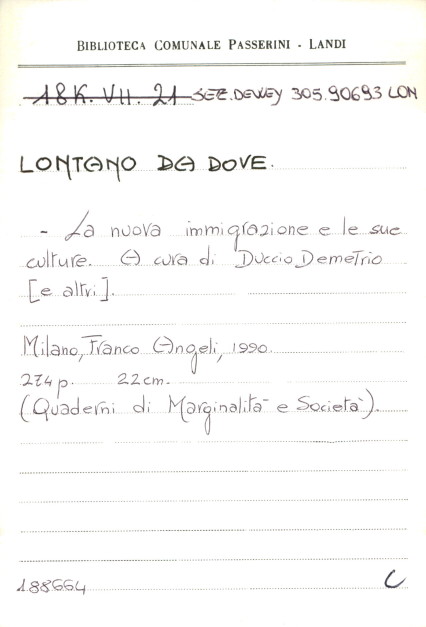 BIBLIOTECA COMUNALE PASSERINI - LANDI
18 K. VII. 21 SEZ. DEWEY 305.90693 LON
LONTANO DA DOVE.
- La nuova immigrazione e le sue
culture. A cura di Duccio Demetrio
[e altri].
Milano, Franco Angeli, 1990.
274 p. 22 cm.
(Quaderni di Marginalità e Società).
188664 C